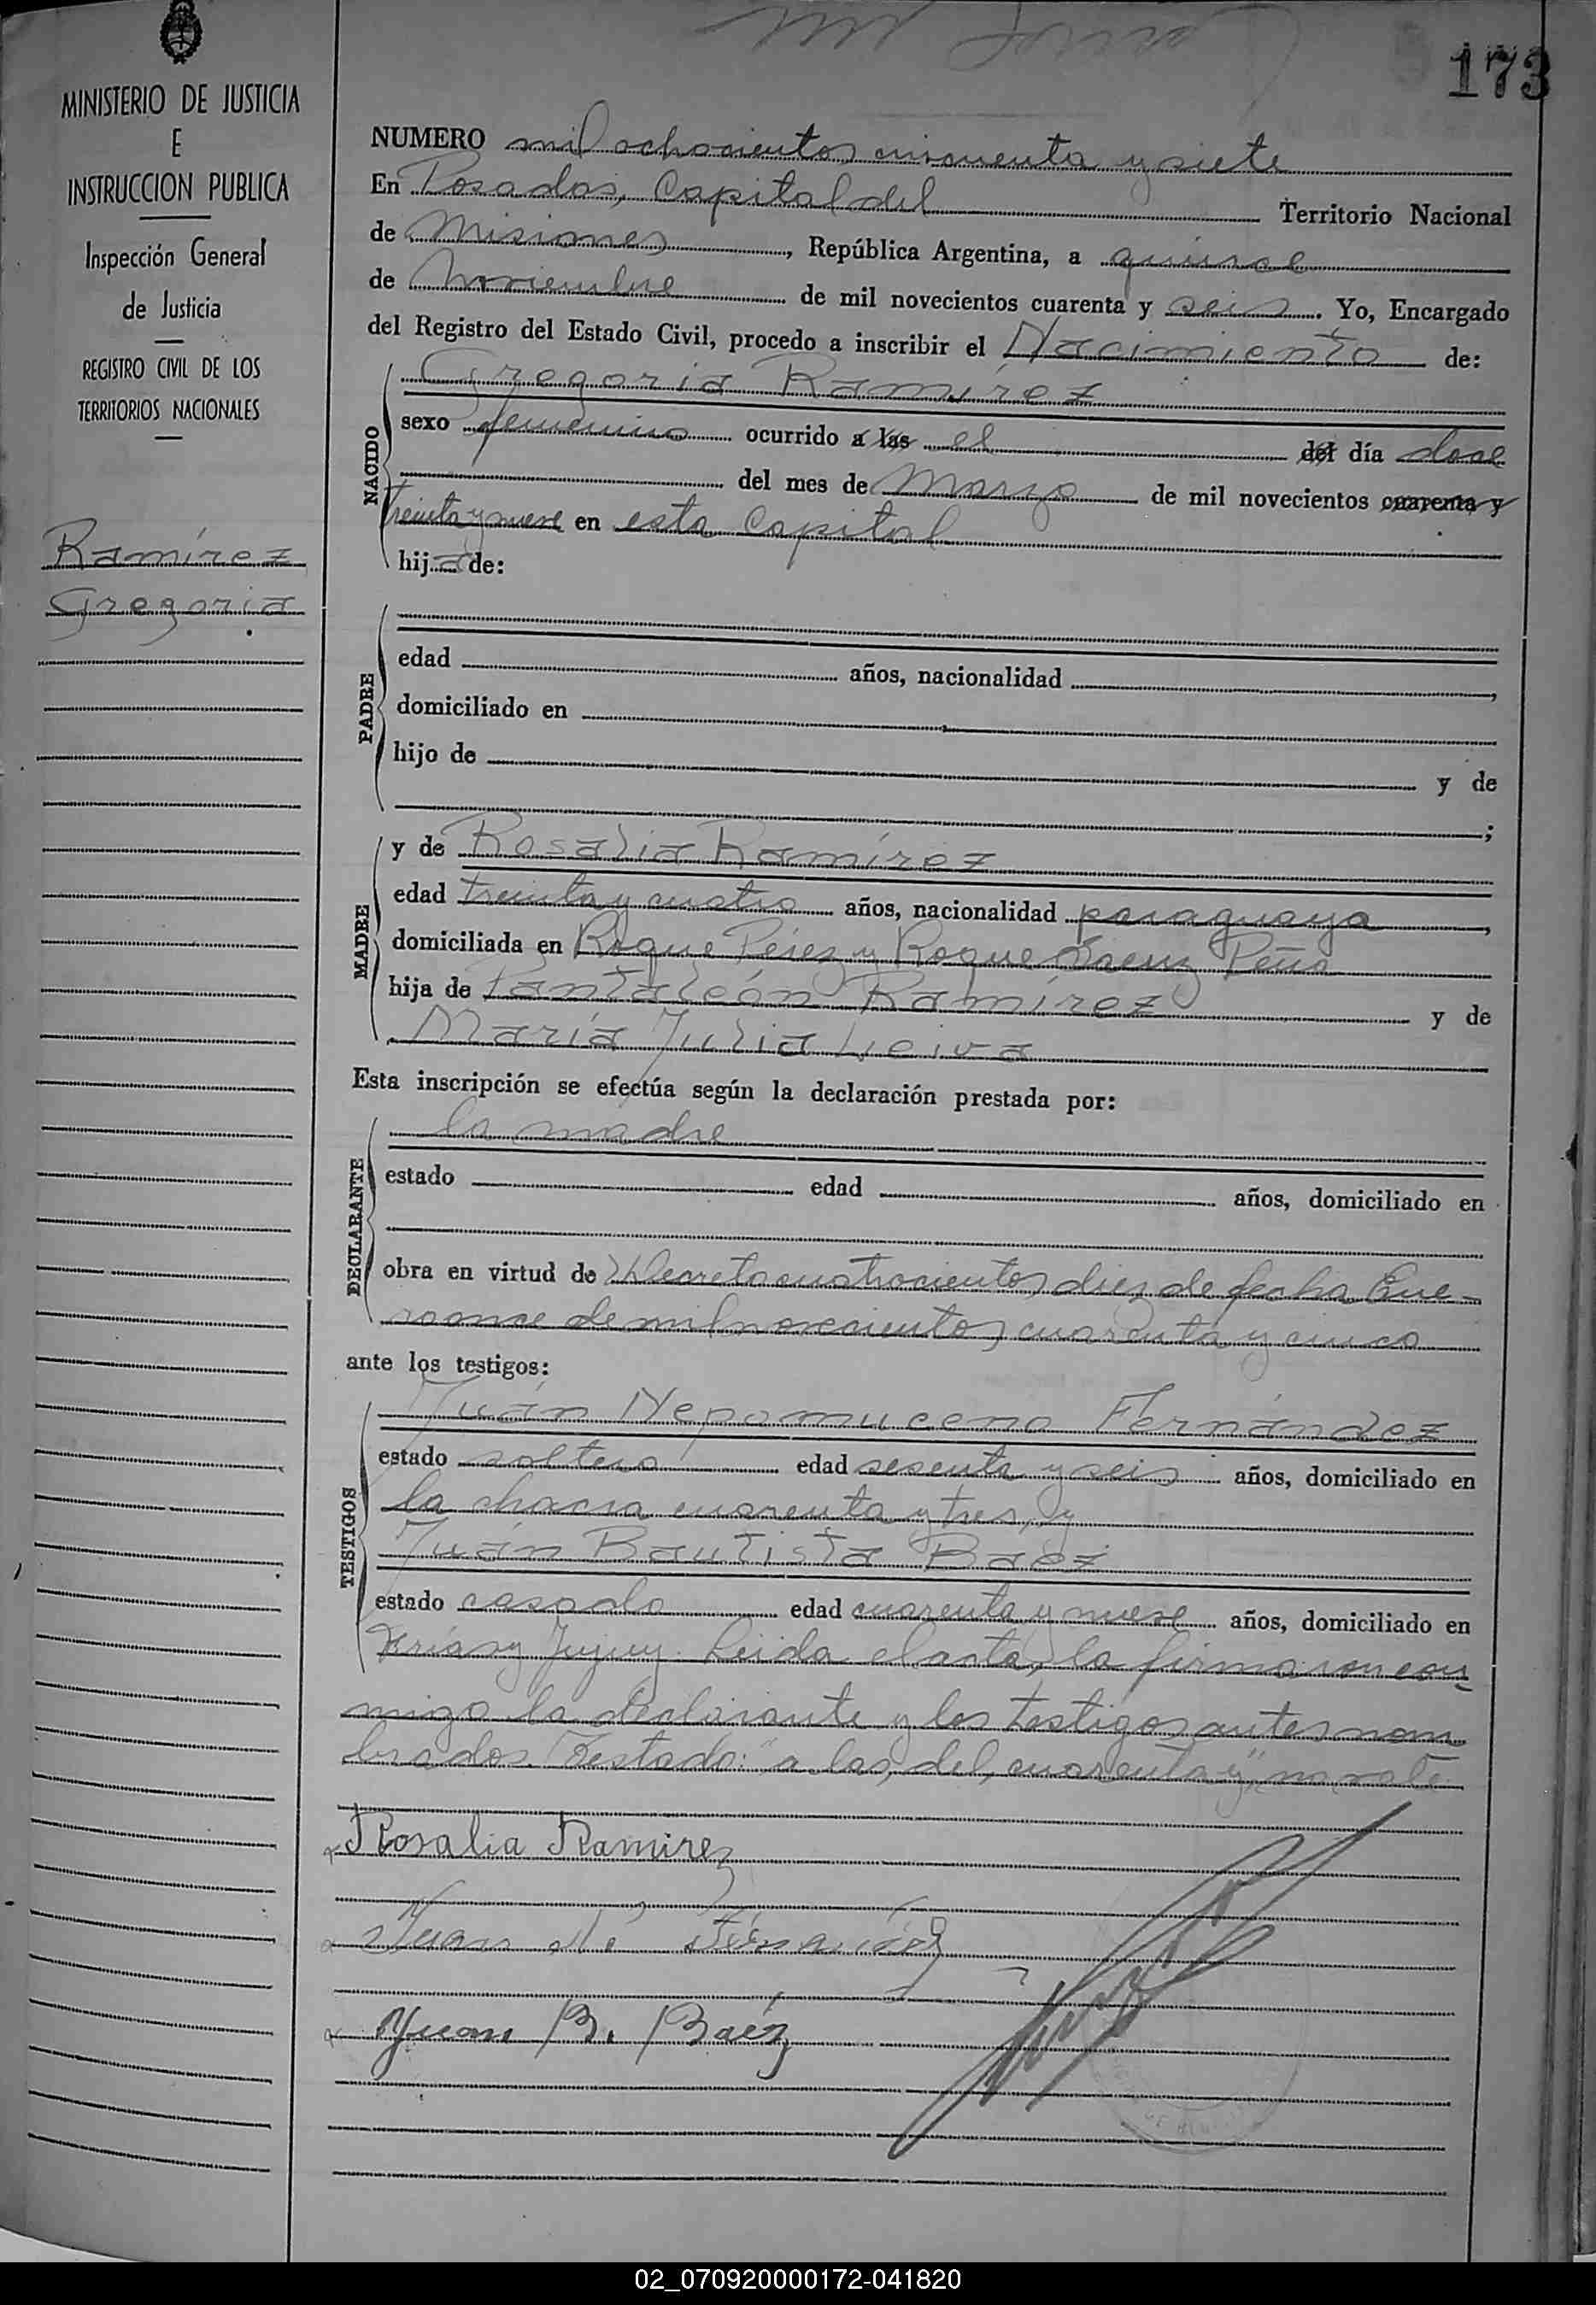 173
MINISTERIO DE JUSTICIA
E
INSTRUCCION PUBLICA
Inspección General
de Justicia
REGISTRO CIVIL DE LOS
TERRITORIOS NACIONALES
Ramírez
Gregoria
NUMERO mil ochocientos cincuenta y siete
En Posadas, Capital del Territorio Nacional
de Misiones, República Argentina, a quince
de Noviembre de mil novecientos cuarenta y seis. Yo, Encargado
del Registro del Estado Civil, procedo a inscribir el Nacimiento de:
NACIDO
Gregoria Ramírez
sexo femenino ocurrido a las el del día doce
del mes de Marzo de mil novecientos cuarenta y
treinta y nueve en esta Capital
hija de:
PADRE
edad años, nacionalidad ,
domiciliado en
hijo de y de
;
MADRE
y de Rosalia Ramírez
edad treinta y cuatro años, nacionalidad paraguaya,
domiciliada en Roque Pérez y Roque Saenz Peña
hija de Pantaleón Ramírez y de
María Julia Leiva
Esta inscripción se efectúa según la declaración prestada por:
DECLARANTE
la madre
estado edad años, domiciliado en
obra en virtud de Decreto cuatrocientos diez de fecha Ene-
ro once de mil novecientos cuarenta y cinco
ante los testigos:
TESTIGOS
Juán Nepomuceno Fernández
estado soltero edad sesenta y seis años, domiciliado en
la chacra cuarenta y tres, y
Juán Bautista Baez
estado casado edad cuarenta y nueve años, domiciliado en
y Jujuy. Leida el acta, la firmaron con
migo la declarante y los testigos antes nom
brados. Testado: "a las, del, cuarenta y", no vale
Rosalia Ramirez
Juan N. Fernández
Juan B. Baéz
02_070920000172-041820